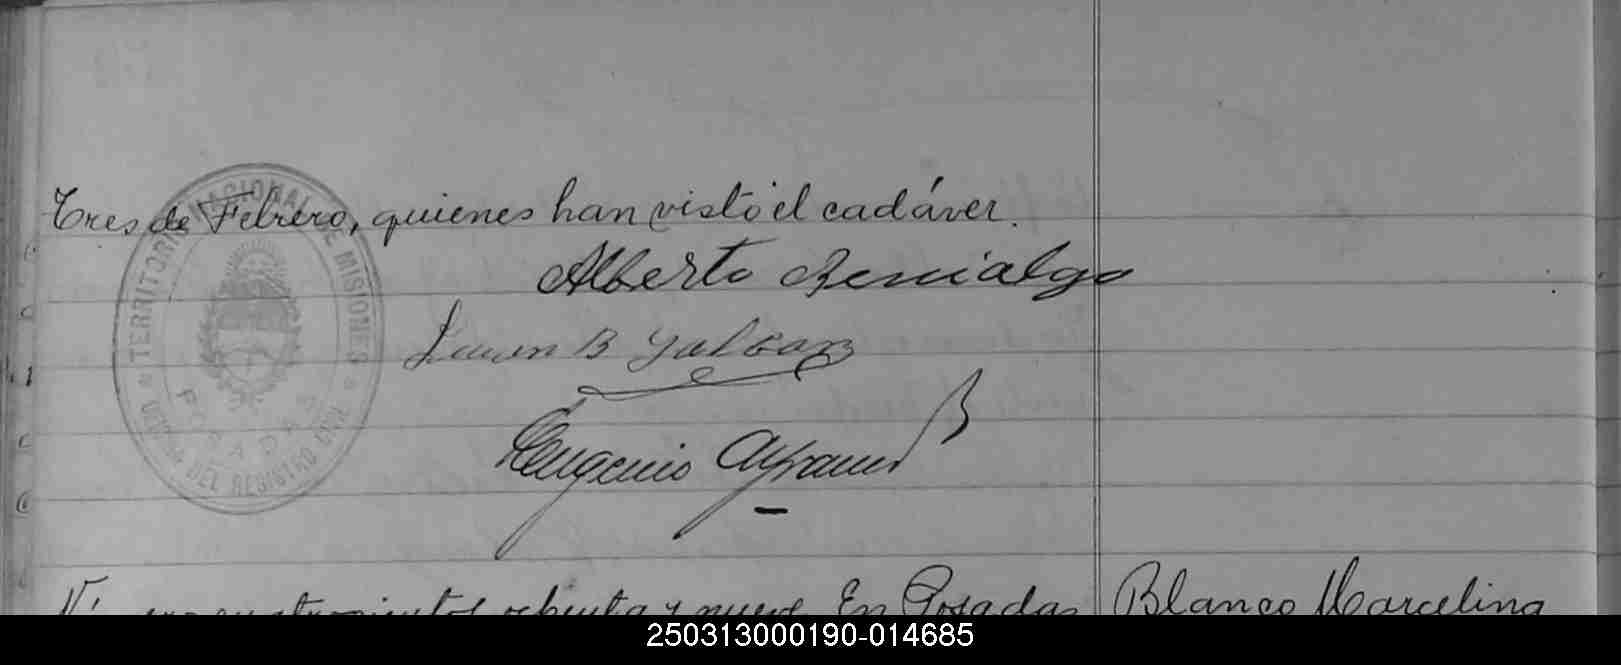 Tres de Febrero, quienes han visto el cadáver.
Alberto Benialgo
Juan B Galban
Eugenio
TERRITORIO NACIONAL DE MISIONES
POSADAS
DEL REGISTRO CIVIL
Nº cuatrocientos ochenta y nueve En Posadas
Blanco Marcelina
250313000190-014685